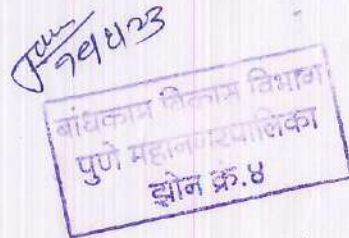 बांधकाम विकास विभाग
पुणे महानगरपालिका
झोन क्रं.४